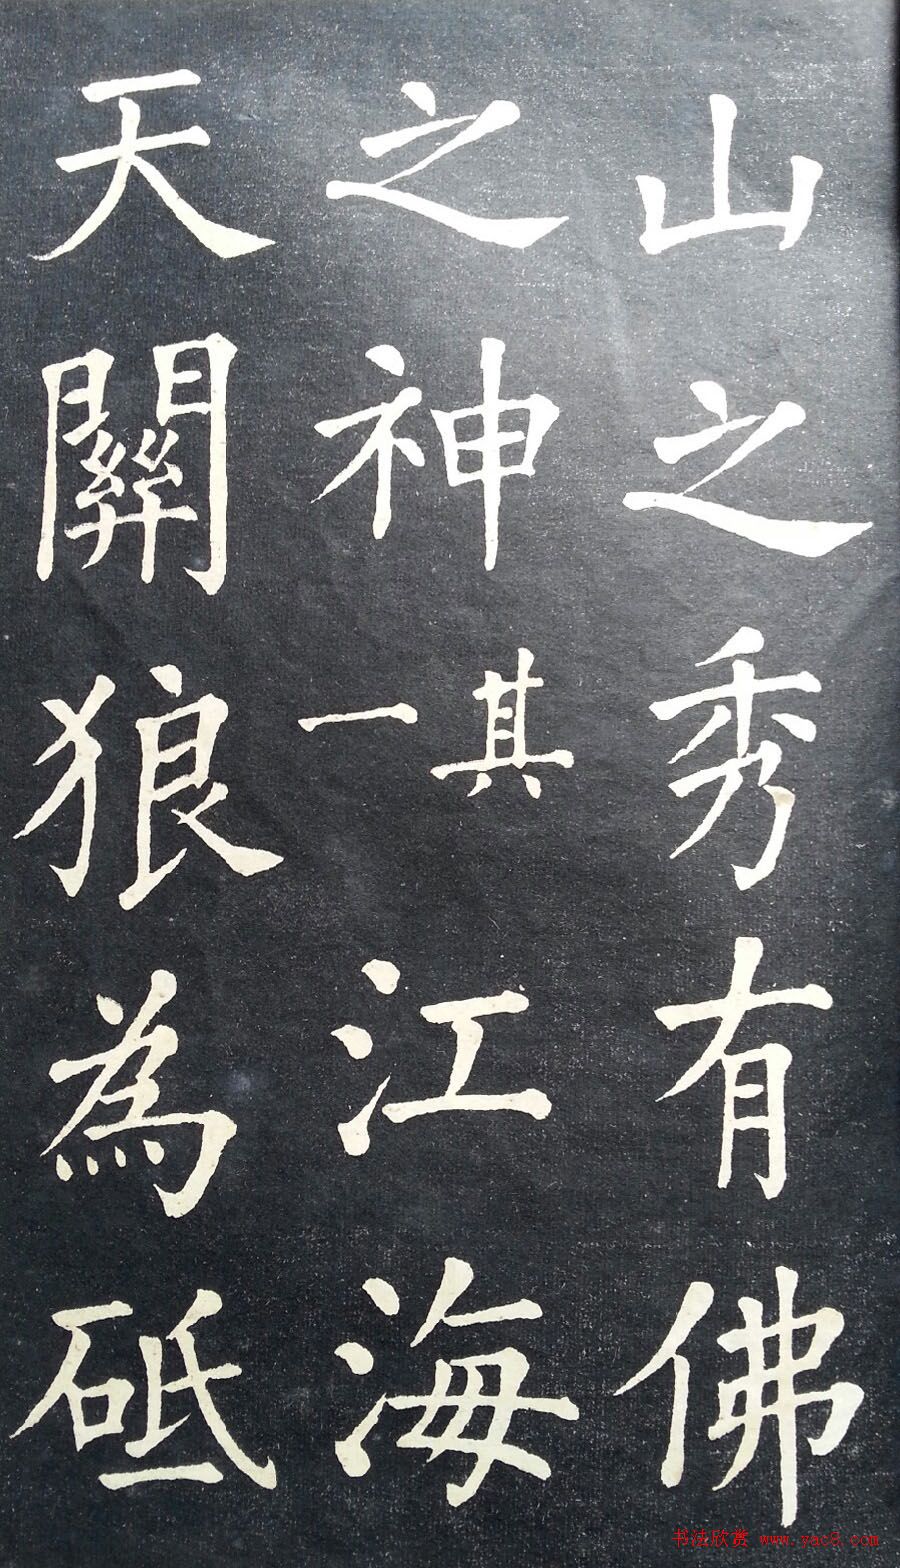 山之秀有佛
之神其一江海
天關狼為砥
书法欣赏 www.yac8.com